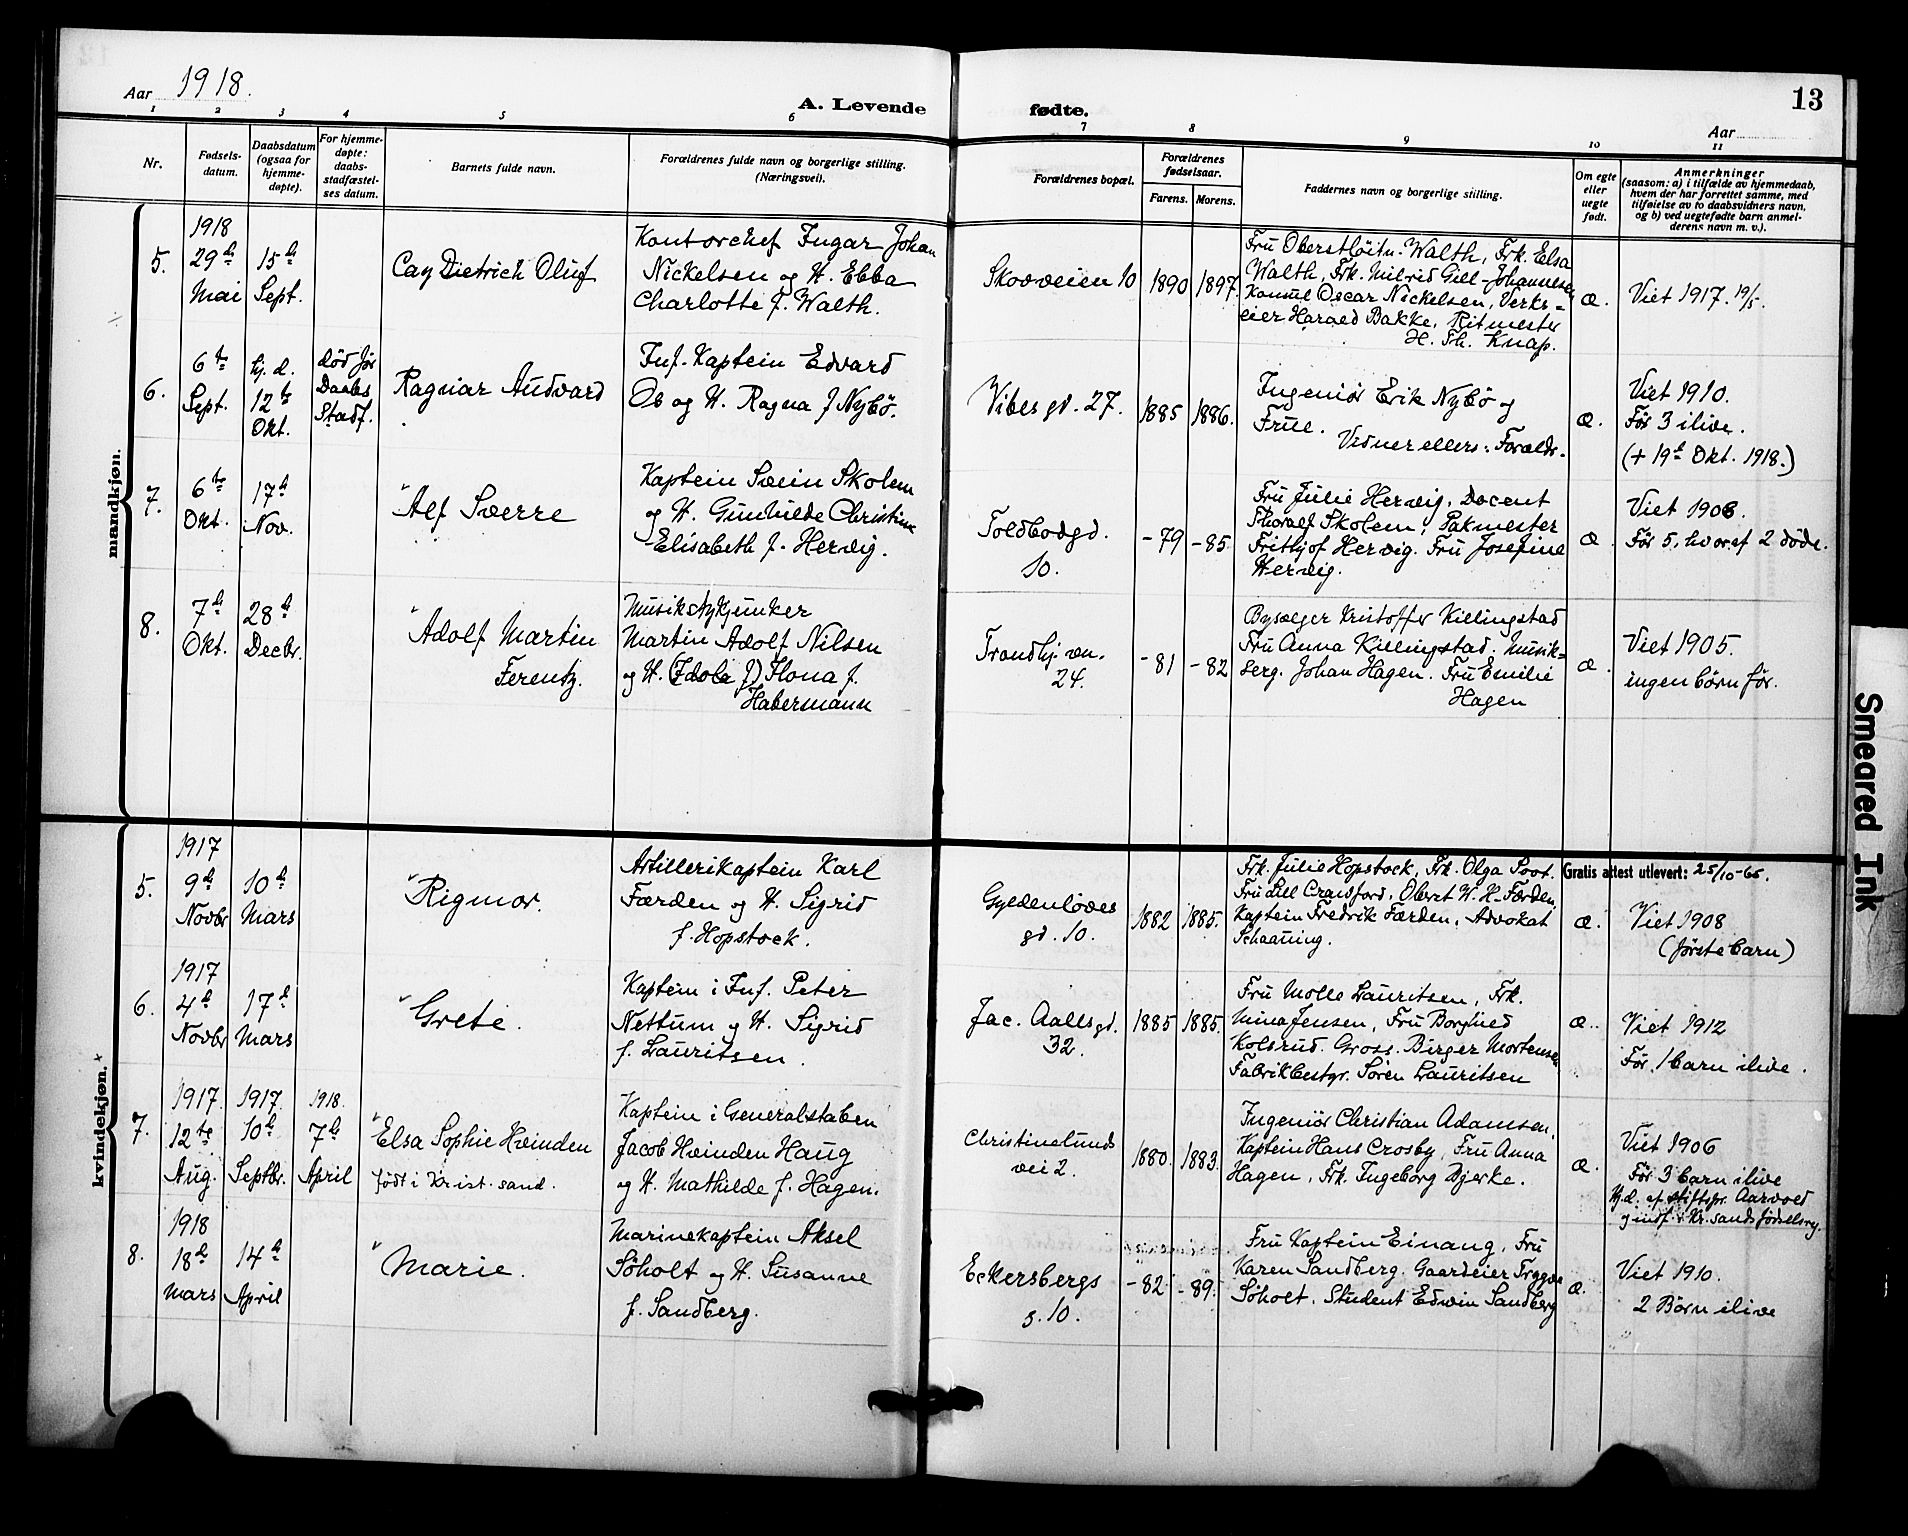 13
Aar 1918.
A. Levende
fødte.
Aar
1 2 3 4 5 6 7 8 9 10 11
Nr.
Fødsels-
datum.
Daabsdatum
(ogsaa for
hjemme-
døpte).
For hjemme-
døpte:
daabs-
stadfæstel-
ses datum.
Barnets fulde navn.
Forældrenes fulde navn og borgerlige stilling.
(Næringsvei).
Forældrenes bopæl.
Forældrenes
fødselsaar.
Farens. Morens.
Faddernes navn og borgerlige stilling.
Om egte
eller
uegte
født.
Anmerkninger
(saasom: a) i tilfælde av hjemmedaab,
hvem der har forrettet samme, med
tilføielse av to daabsvidners navn,
og b) ved uegtefødte barn anmel-
derens navn m. v.).
mandkjøn.
5.
1918
29de
Mai
15de
Sept.
Cay Dietrich Oluf
Kontorchef Ingar Johan
Nickelsen og H. Ebba
Charlotte f. Walth.
Skovveien 10
1890
1897.
Fru Oberstløitn. Walth, Frk. Elsa
Walth, Frk. Milrid Gill-Johannesen
Konsul Oscar Nickelsen, Verks-
eier Harald Bakke, Ritmester
H. Th. Knap.
æ.
Viet 1917. 19/5.
6.
6te
Sept.
hj. d.
12te
Okt.
død før
Daabs
Stadf.
Ragnar Audvard
Inf. Kaptein Edvard
Os og H. Ragna f Nybö.
Vibes gd. 27.
1885
1886.
Ingeniör Erik Nybö og
Frue.
Vidner ellers: Foraldr.
æ.
Viet 1910.
Før 3 ilive.
(+ 19de Okt. 1918.)
7.
6te
Okt.
17de
Nov.
Alf Sverre
Kaptein Svein Skolem
og H. Gunhilde Christine
Elisabeth f. Hervig.
Toldbodgd.
10.
- 79
- 85.
Fru Julie Hervig, Docent
Thoralf Skolem, Pakmester
Frithjof Hervig. Fru Josefine
Hervig.
æ.
Viet 1906.
Før 5, hvoraf 2 døde.
8.
7de
Okt.
28de
Decbr.
Adolf Martin
Ferentz.
Musikstykjunker
Martin Adolf Nilsen
og H. (Idola f) Ilona f.
Habermann
Trondhj.vn.
24.
- 81
- 82
Bysælger Kristoffer Killingstad
Fru Anna Killingstad. Musik-
serg. Johan Hagen. Fru Emilie
Hagen
æ.
Viet 1905.
ingen børn før.
kvindekjøn.
5.
1917
9de
Novbr
10de
Mars
Rigmor.
Artillerikaptein Karl
Færden og H. Sigrid
f. Hopstock.
Gyldenløves
gd. 10.
1882
1885.
Frk. Julie Hopstock, Frk. Olga Poot.
Fru Lill Crawford, Oberst W. H. Færden,
Kaptein Fredrik Færden, Advokat
Schaaning.
æ.
Gratis attest utlevert: 25/10-65.
Viet 1908
(første barn)
6.
1917
4de
Novbr
17de
Mars
Grete.
Kaptein i Inf. Peter
Nettum og H. Sigrid
f. Lauritsen.
Jac. Aallsgd.
32.
1885
1885.
Fru Molle Lauritsen, Frk.
Mina Jensen, Fru Borghild
Kolsrud. Gross. Birger Mortensen
Fabrikbestyr. Sören Lauritsen
æ.
Viet 1912
Før 1 barn ilive.
7.
1917
12te
Aug.
1917
10de
Septbr.
1918.
7de
April
Elsa Sophie Hvinden
født i Krist.sand.
Kaptein i Generalstaben
Jacob Hvinden Haug
og H. Mathilde f. Hagen.
Christinelunds
vei 2.
1880.
1883.
Ingeniör Christian Adamsen,
Kaptein Hans Crosby, Fru Anna
Hagen, Frk. Ingeborg Bjerke.
æ.
Viet 1906
Før 3 barn ilive
Hj.d. af stiftspr. Aarvold
og indf i Kr.sands fødselsreg.
8.
1918
18de
Mars
14de
April
Marie.
Marinekaptein Aksel
Söholt og H. Susanne
f. Sandberg.
Eckersbergs
g. 10.
- 82
- 89.
Fru Kaptein Einang, Fru
Karen Sandberg. Gaardeier Trygve
Söholt, Student Edwin Sandberg
æ.
Viet 1910.
2 Børn ilive
Smeared Ink